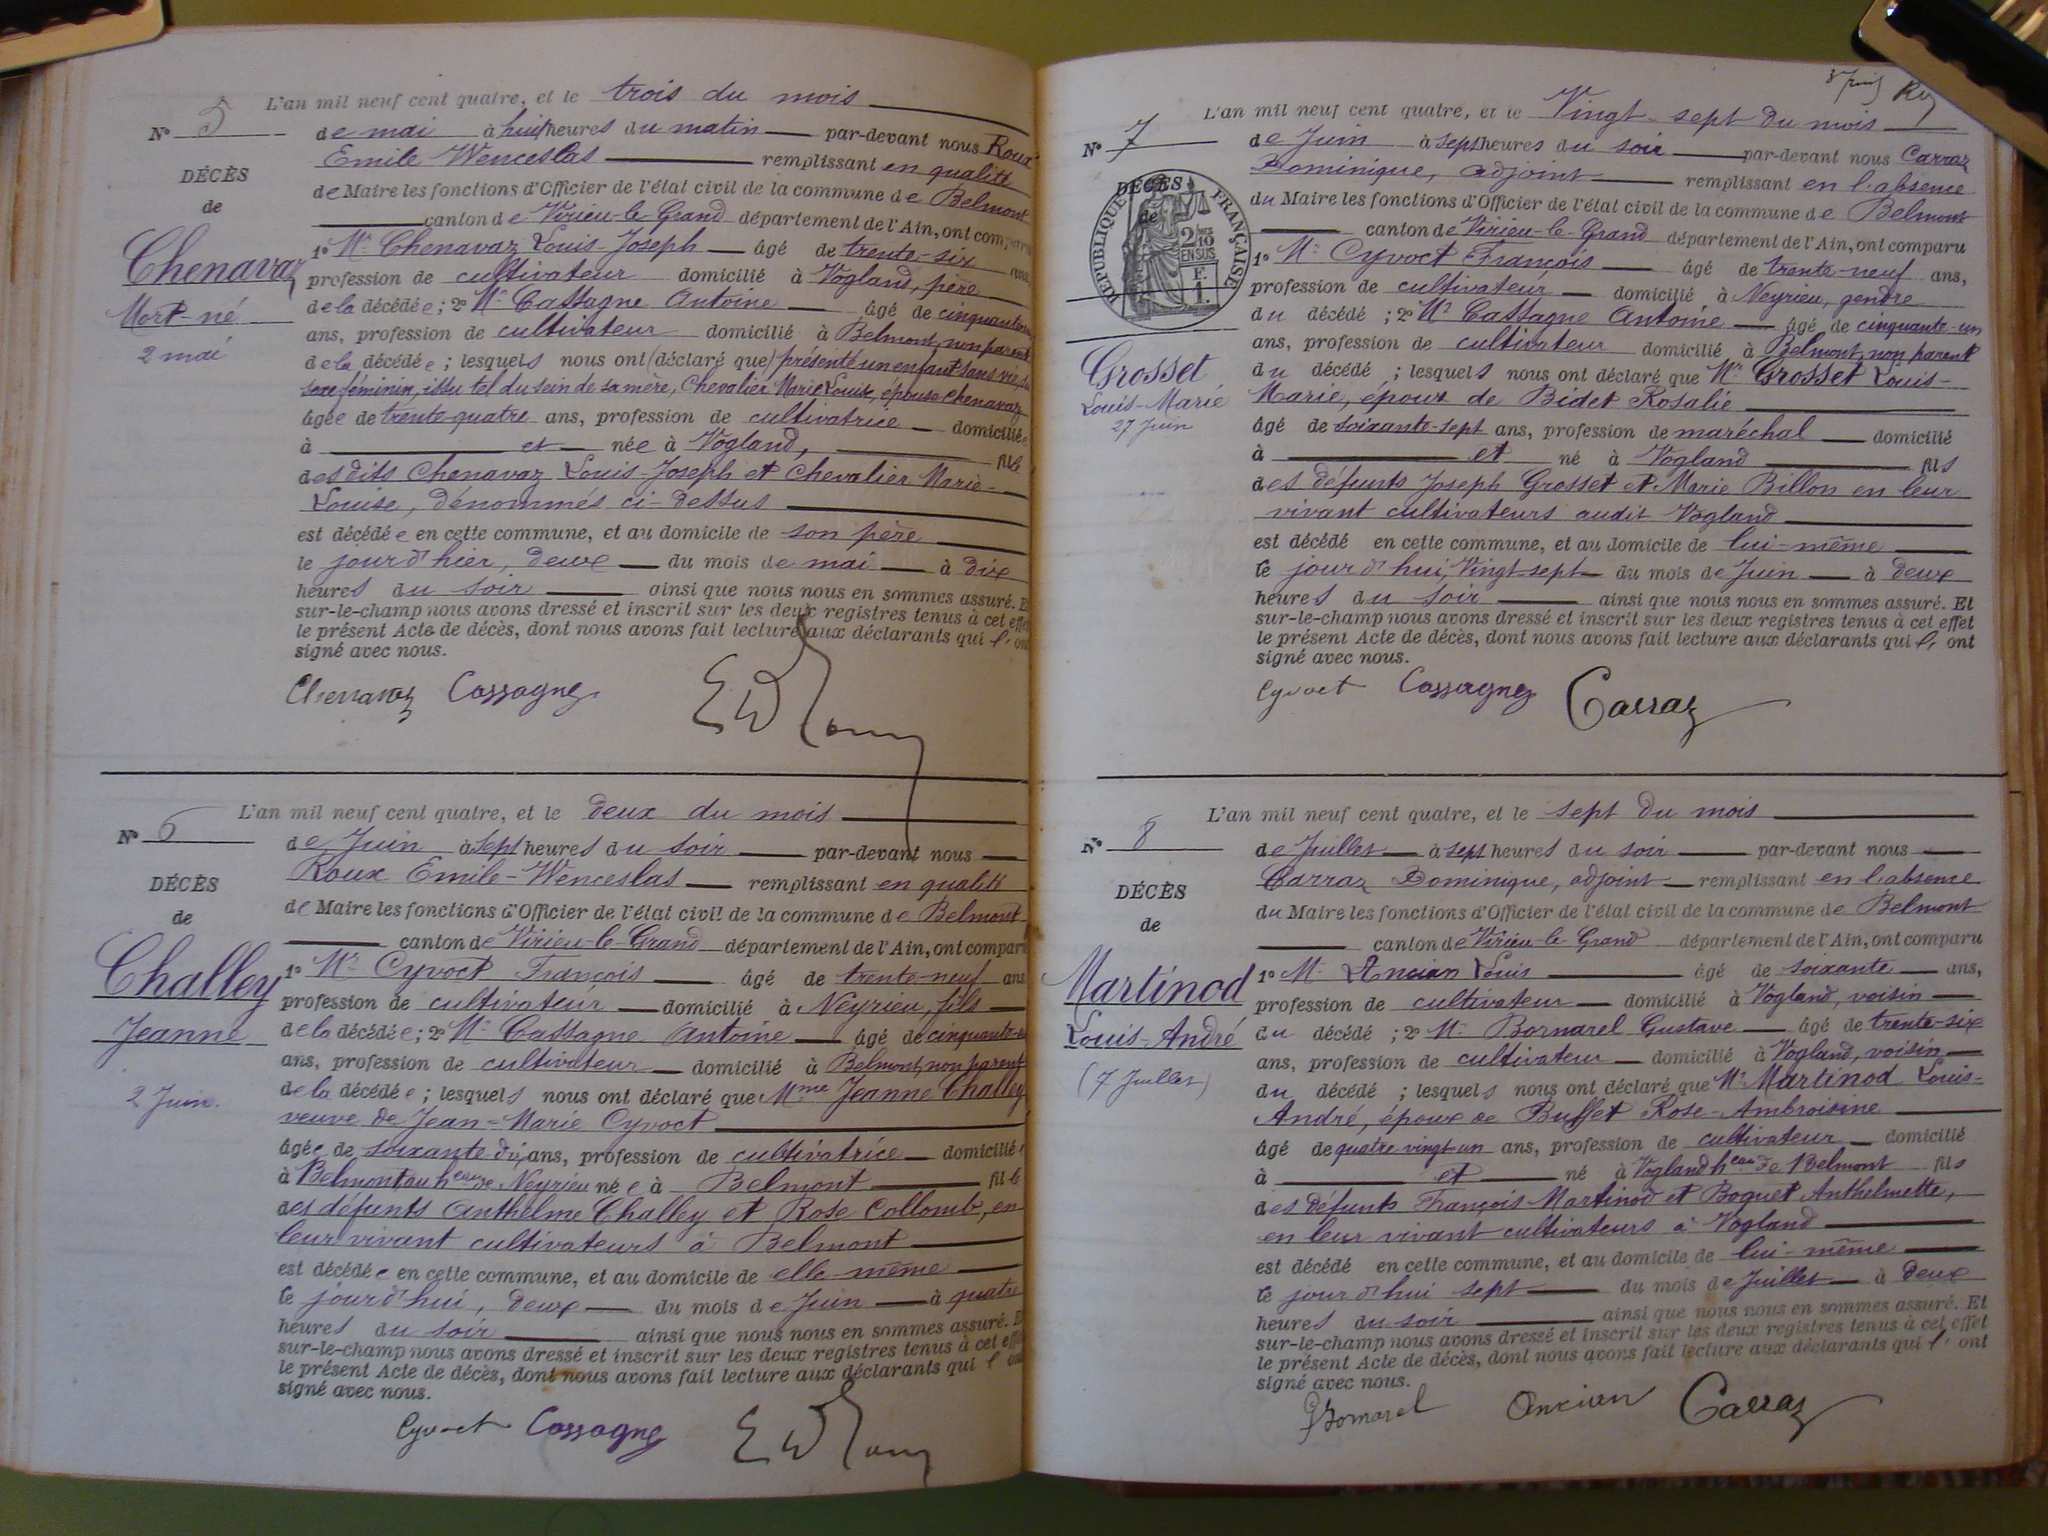 L'an mil neuf cent quatre, et le trois du mois
N° 5
de mai à huit heures du matin par-devant nous Roux
Emile Wenceslas remplissant en qualité
DÉCÈS
de Maire les fonctions d'Officier de l'état civil de la commune de Belmont
de
canton de Virieu-le-Grand département de l'Ain, ont comparu
Chenavaz
1° Mr Chenavaz Louis-Joseph âgé de trente-six ans,
profession de cultivateur domicilié à Vogland, père
Mort-né
de la décédée ; 2° Mr Cassagne Antoine âgé de cinquante-un
ans, profession de cultivateur domicilié à Belmont, non parent
2 mai
de la décédée ; lesquels nous ont (déclaré que) présenté un enfant sans vie, du
sexe féminin, issu tel du sein de sa mère, Chevalier Marie Louise, épouse Chenavaz
âgée de trente-quatre ans, profession de cultivatrice domiciliée
à et née à Vogland, fille
des dits Chenavaz Louis-Joseph et Chevalier Marie-
Louise, dénommés ci-dessus
est décédée en cette commune, et au domicile de son père
le jour d'hier, deux du mois de mai à dix
heures du soir ainsi que nous nous en sommes assuré. Et
sur-le-champ nous avons dressé et inscrit sur les deux registres tenus à cet effet
le présent Acte de décès, dont nous avons fait lecture aux déclarants qui l'ont
signé avec nous.
Chenavaz Cassagne E W Roux
L'an mil neuf cent quatre, et le deux du mois
N° 6
de Juin à sept heures du soir par-devant nous
Roux Emile-Wenceslas remplissant en qualité
DÉCÈS
de Maire les fonctions d'Officier de l'état civil de la commune de Belmont
de
canton de Virieu-le-Grand département de l'Ain, ont comparu
Challey
1° Mr Cyvoct François âgé de trente-neuf ans
profession de cultivateur domicilié à Neyrieu, fils
Jeanne
de la décédée ; 2° Mr Cassagne Antoine âgé de cinquante-un
ans, profession de cultivateur domicilié à Belmont, non parent
2 Juin.
de la décédée ; lesquels nous ont déclaré que Mme Jeanne Challey
veuve de Jean-Marie Cyvoct
âgée de soixante dix ans, profession de cultivatrice domiciliée
à Belmont au heau de Neyrieu née à Belmont fille
des défunts Anthelme Challey et Rose Collomb, en
leur vivant cultivateurs à Belmont
est décédée en cette commune, et au domicile de elle-même
le jour d'hui, deux du mois de Juin à quatre
heures du soir ainsi que nous nous en sommes assuré. Et
sur-le-champ nous avons dressé et inscrit sur les deux registres tenus à cet effet
le présent Acte de décès, dont nous avons fait lecture aux déclarants qui l'ont
signé avec nous.
Cyvoct Cassagne E W Roux
L'an mil neuf cent quatre, et le Vingt-sept du mois
N° 7
de Juin à sept heures du soir par-devant nous Carraz
Dominique, adjoint remplissant en l'absence
DÉCÈS
de
RÉPUBLIQUE FRANÇAISE
2/10 EN SUS
F. 1.
du Maire les fonctions d'Officier de l'état civil de la commune de Belmont
canton de Virieu-le-Grand département de l'Ain, ont comparu
1° Mr Cyvoct François âgé de trente-neuf ans,
profession de cultivateur domicilié à Neyrieu, gendre
du décédé ; 2° Mr Cassagne Antoine âgé de cinquante-un
ans, profession de cultivateur domicilié à Belmont, non parent
Grosset
du décédé ; lesquels nous ont déclaré que Mr Grosset Louis-
Louis-Marie
Marie, époux de Bidet Rosalie
27 Juin
âgé de soixante-sept ans, profession de maréchal domicilié
à et né à Vogland fils
des défunts Joseph Grosset et Marie Billon en leur
vivant cultivateurs audit Vogland
est décédé en cette commune, et au domicile de lui-même
le jour d'hui, Vingt-sept du mois de Juin à deux
heures du soir ainsi que nous nous en sommes assuré. Et
sur-le-champ nous avons dressé et inscrit sur les deux registres tenus à cet effet
le présent Acte de décès, dont nous avons fait lecture aux déclarants qui l'ont
signé avec nous.
Cyvoct Cassagne Carraz
L'an mil neuf cent quatre, et le sept du mois
N° 8
de Juillet à sept heures du soir par-devant nous
Carraz Dominique, adjoint remplissant en l'absence
DÉCÈS
du Maire les fonctions d'Officier de l'état civil de la commune de Belmont
de
canton de Virieu-le-Grand département de l'Ain, ont comparu
Martinod
1° Mr Ancian Louis âgé de soixante ans,
profession de cultivateur domicilié à Vogland, voisin
Louis-André
du décédé ; 2° Mr Bornarel Gustave âgé de trente-six
ans, profession de cultivateur domicilié à Vogland, voisin
(7 Juillet)
du décédé ; lesquels nous ont déclaré que Mr Martinod Louis-
André, époux de Buffet Rose-Ambroisine
âgé de quatre vingt un ans, profession de cultivateur domicilié
à et né à Vogland heau de Belmont fils
des défunts François Martinod et Boguet Anthelmette,
en leur vivant cultivateurs à Vogland
est décédé en cette commune, et au domicile de lui-même
le jour d'hui sept du mois de Juillet à deux
heures du soir ainsi que nous nous en sommes assuré. Et
sur-le-champ nous avons dressé et inscrit sur les deux registres tenus à cet effet
le présent Acte de décès, dont nous avons fait lecture aux déclarants qui l'ont
signé avec nous.
Bornarel Ancian Carraz